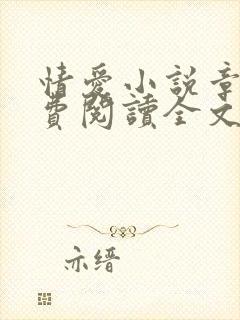 情愛小說章
費閱讀全文
亦缙